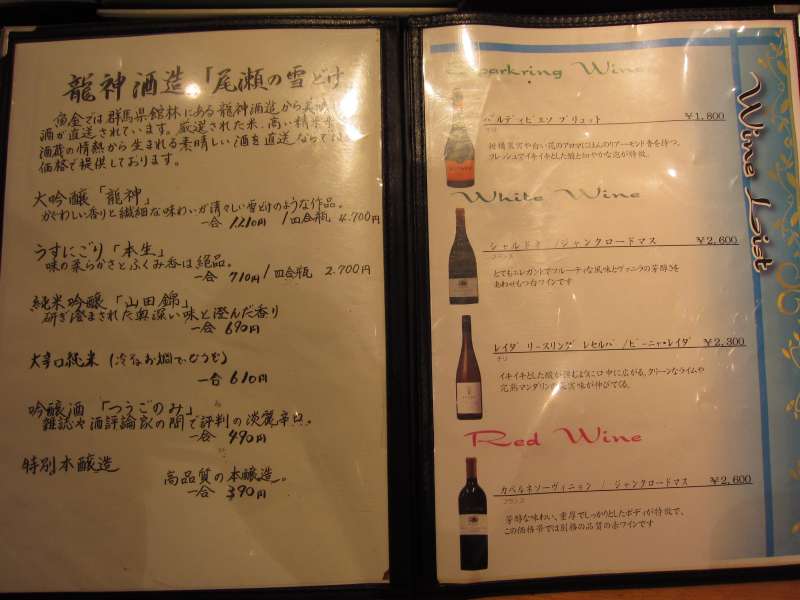 龍神酒造「尾瀬の雪どけ」
黄金では群馬県館林にある龍神酒造から
酒が直送されています。厳選された米、高い精米
酒蔵の情熱から生まれる素晴しい酒を直送ならでは
価格で提供しております。
大吟醸「龍神」
かぐわしい香りと繊細な味わいが清々しい雪どけのような作品。
一合 1210円 / 四合瓶 4.700円
うすにごり「本生」
味の柔らかさとふくみ香は絶品。
一合 710円 / 四合瓶 2.700円
純米吟醸「山田錦」
研ぎ澄まされた奥深い味と澄んだ香り
一合 690円
大辛口純米(冷 お燗でどうぞ)
一合 610円
吟醸酒「つうごのみ」
雑誌や酒評論家の間で評判の淡麗辛口。
一合 490円
特別本醸造
高品質の本醸造。
一合 390円
Wine List
Sparkring Wine
バルディビエソ ブリュット ￥1,800
チリ
柑橘果実や白い花のアロマにほんのりアーモンド香を持つ。
フレッシュでイキイキとした酸と細やかな泡が特徴。
White Wine
シャルドネ /ジャンクロードマス ￥2,600
フランス
とてもエレガントでフルーティな風味とヴァニラの芳醇さを
あわせもつ白ワインです
レイダ リースリング レセルバ /ビーニャ・レイダ ￥2,300
チリ
イキイキとした酸が弾むように口中に広がる。クリーンなライムや
完熟マンダリンの果実味が伸びてくる。
Red Wine
カベルネソーヴィニョン / ジャンクロードマス ￥2,600
フランス
芳醇な味わい、重厚でしっかりとしたボディが特徴で、
この価格帯では別格の品質の赤ワインです